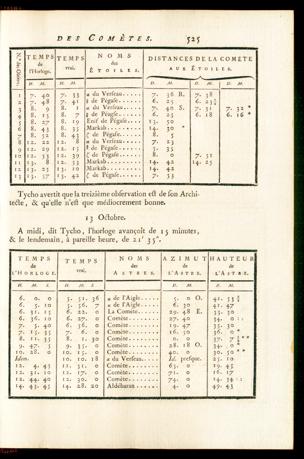 DES COMÈTES. 525
N.os des Observ. TEMPS de l'Horloge. TEMPS vrai. NOMS des ÉTOILES. DISTANCES DE LA COMÈTE AUX ÉTOILES.
1 7. 40 7. 33 α du Verseau 7. 36 R. 7. 38
2 7. 48 7. 41 ξ de Pégase 6. 25
3 8. 9 8. 1 α du Verseau 7. 40 S. 7. 31 7. 32 *
4 8. 15 8. 7 ξ de Pégase 6. 25 6. 18 6. 16 *
5 8. 27 8. 19 Enif de Pégase 13. 50
6 8. 43 8. 35 Markab 14. 30 *
7 8. 52 8. 43 ζ de Pégase 8. 5
8 12. 22 12. 8 α du Verseau 7. 23
9 12. 29 12. 15 ξ de Pégase 5. 35
10 12. 53 12. 39 ζ de Pégase 8. 0 7. 51
11 13. 8 12. 53 Markab 14. 42 14. 25
12 13. 25 13. 10 Markab 14. 42
13 13. 57 13. 42 ζ de Pégase 7. 53
Tycho avertit que la treizième observation est de son Archi-
tecte, & qu'elle n'est que médiocrement bonne.
13 Octobre.
A midi, dit Tycho, l'horloge avançoit de 15 minutes,
& le lendemain, à pareille heure, de 21' 35".
TEMPS de L'HORLOGE. TEMPS vrai. NOMS des ASTRES. AZIMUT de L'ASTRE. HAUTEUR de L'ASTRE.
H. M. S. H. M. S. D. M. D. M.
6. 0. 0 5. 51. 36 α de l'Aigle 5. 0 O. 41. 53
6. 5. 10 5. 56. 7 α de l'Aigle 6. 30 41. 47
6. 31. 15 6. 22. 0 La Comète 29. 48 E. 33. 30
6. 36. 10 6. 27. 0 Comète 27. 40 34. 0
7. 5. 40 6. 56. 0 Comète 19. 47 35. 30
7. 15. 35 7. 6. 0 Comète 16. 50 36. 0 *
8. 11. 35 8. 1. 30 Comète 0. 0 37. 7 **
9. 47. 5 9. 35. 0 Comète 28. 18 O. 34. 0 *
10. 28. 0 10. 15. 0 Comète 40. 0 30. 50 **
Idem. 10. 10. 18 α du Verseau Id. presque. 25. 10
12. 4. 45 Comète 63. 0 19. 45
12. 31. 10 Comète 71. 0 16. 17
12. 44. 40 12. 30. 0 Comète 74. 0 14. 34
14. 43. 35 14. 28. 20 Aldébaran 4. 0 49. 43